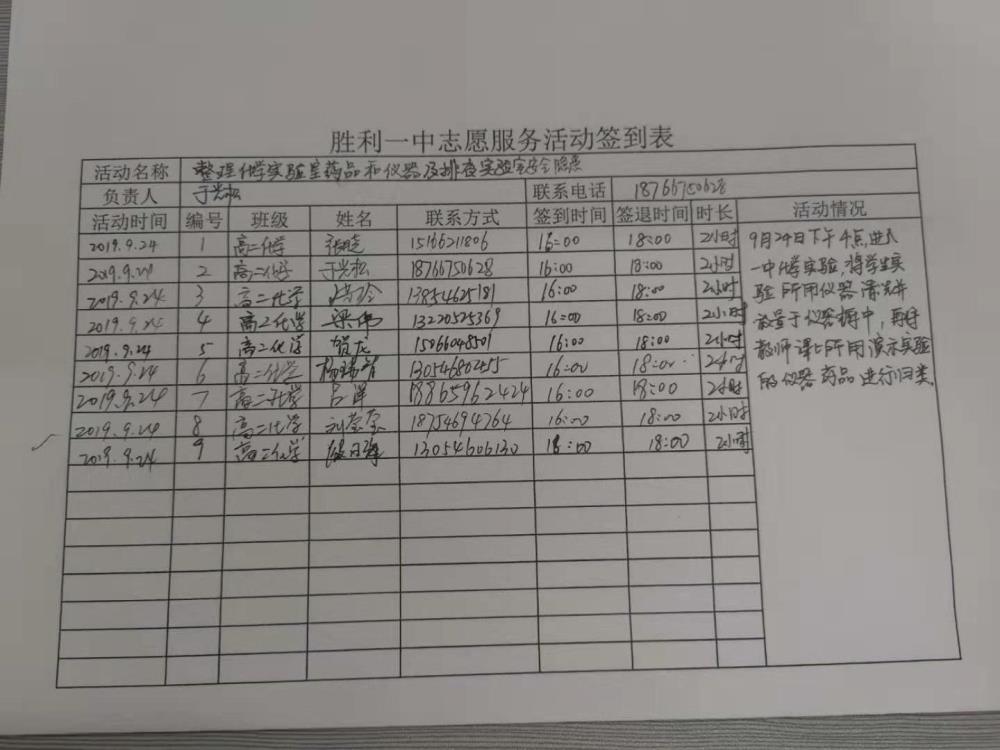 胜利一中志愿服务活动签到表
活动名称 整理化学实验室药品和仪器及排查实验室安全隐患
负责人 于光松 联系电话 18766750628
活动时间 编号 班级 姓名 联系方式 签到时间 签退时间 时长 活动情况
2019.9.24 1 高二化学 15166211806 16:00 18:00 2小时
2019.9.24 2 高二化学 于光松 18766750628 16:00 18:00 2小时
2019.9.24 3 高二化学 13854625181 16:00 18:00 2小时
2019.9.24 4 高二化学 梁伟 13220525369 16:00 18:00 2小时
2019.9.24 5 高二化学 15066048501 16:00 18:00 2小时
2019.9.24 6 高二化学 13054680255 16:00 18:00 2小时
2019.9.24 7 高二化学 吕洋 18865962424 16:00 18:00 2小时
2019.9.24 8 高二化学 刘荟荟 18754694764 16:00 18:00 2小时
2019.9.24 9 高二化学 13054606130 18:00 2小时
9月24日下午4点,进入
一中化学实验,将学生实
验所用仪器清洗并
放置于仪器橱中,再将
教师课上所用演示实验
的仪器药品进行归类.